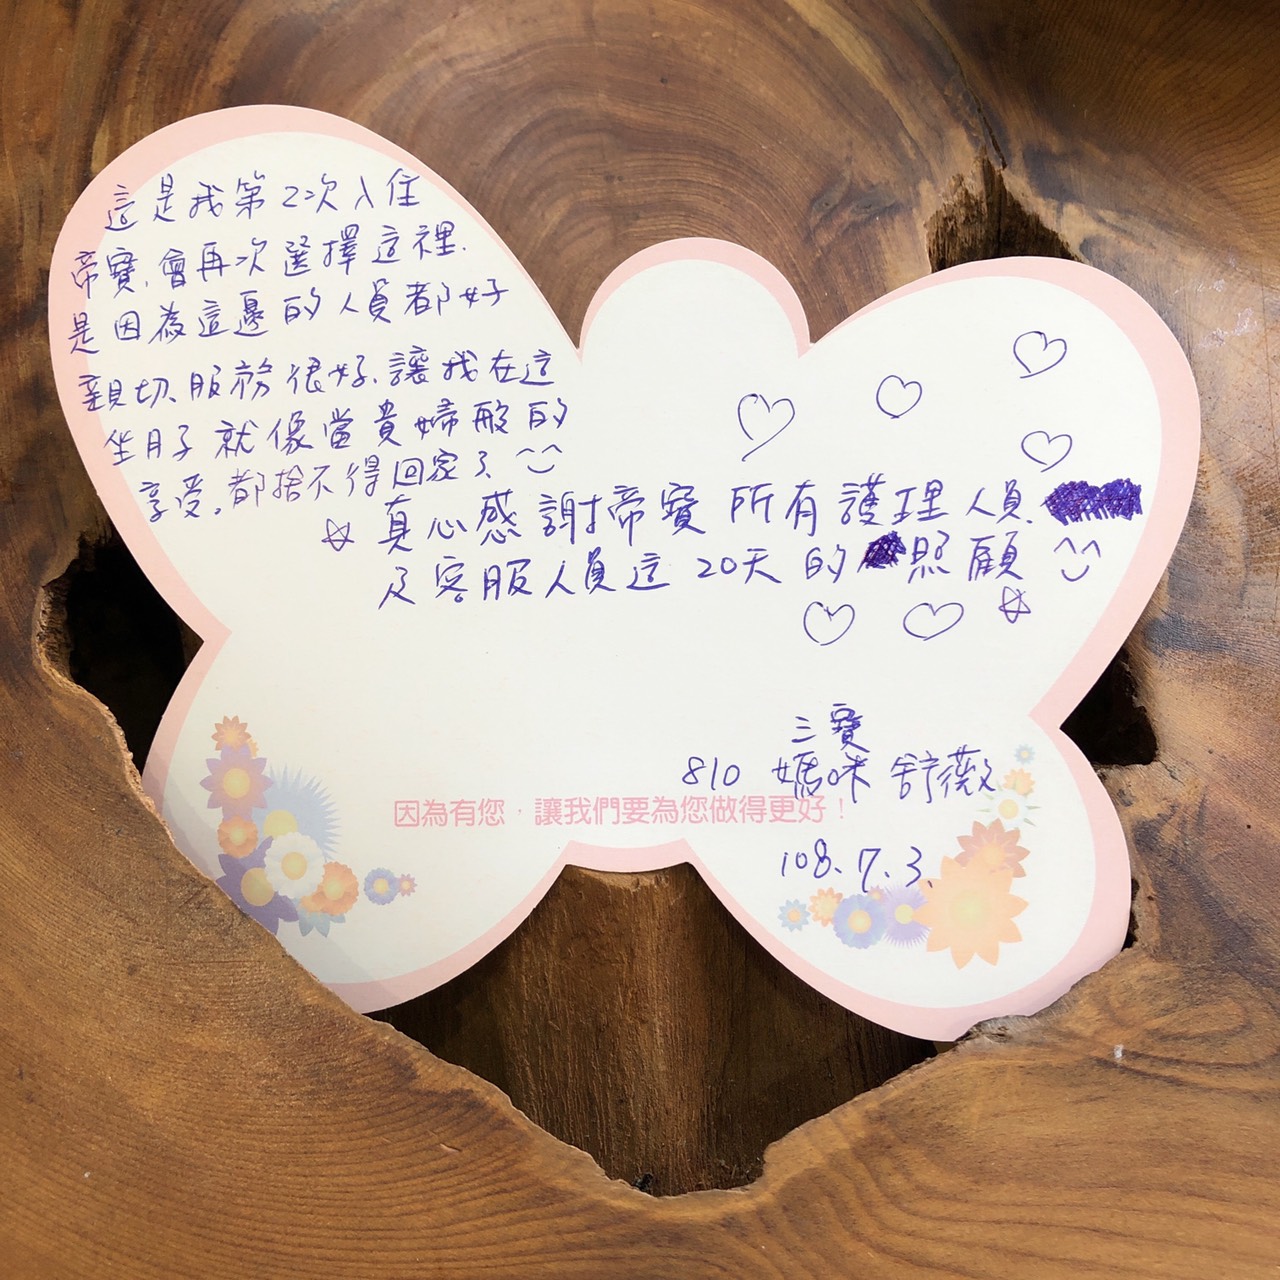 這是我第2次入住
帝寶,會再次選擇這裡.
是因為這邊的人員都好
親切、服務很好、讓我在這
坐月子就像當貴婦般的
享受。都捨不得回家了
真心感謝帝寶所有護理人員
及客服人員這20天的照顧
三寶
810 媽咪 舒薇
因為有您,讓我們要為您做得更好!
108.7.3.